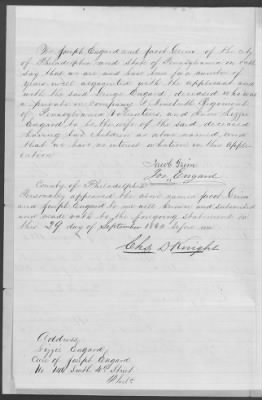 We Joseph Engard and Jacob Grim of the city
of Philadelphia and State of Pennsylvania on oath
say that we are and have been for a number of
years well acquainted with the applicant and
with the said Engard, deceased who was
a private in company Regiment
of Pennsylvania Volunteers, and know Lizzie
Engard to be the wife of the said deceased
having had children as above named, and
that we have no interest whatever in this appli-
cation
Jacob Grim
Jos. Engard
County of Philadelphia
Personally appeared the above named Jacob Grim
and Joseph Engard to me well known and subscribed
and made oath to the foregoing Statement on
this 29 day of September before me
Chas D Knight
Address
Lizzie Engard
Care of Joseph Engard
No South 4th Street
Phila